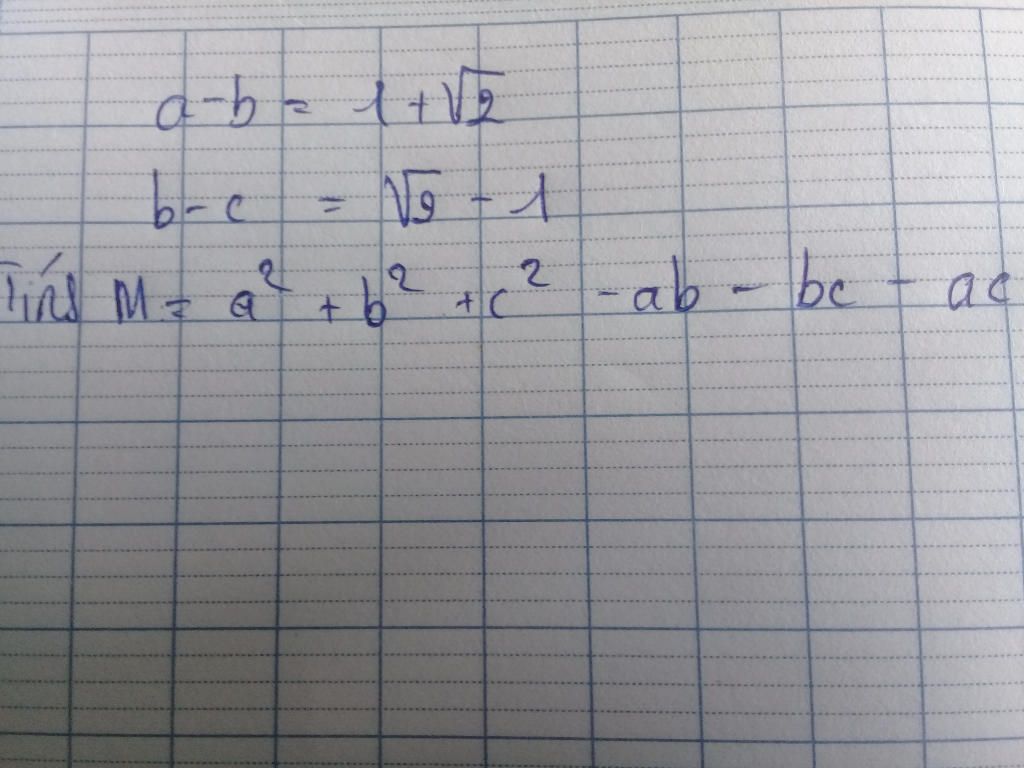 a - b = 1 + √2
b - c = √2 - 1
Tính M = a² + b² + c² - ab - bc - ac